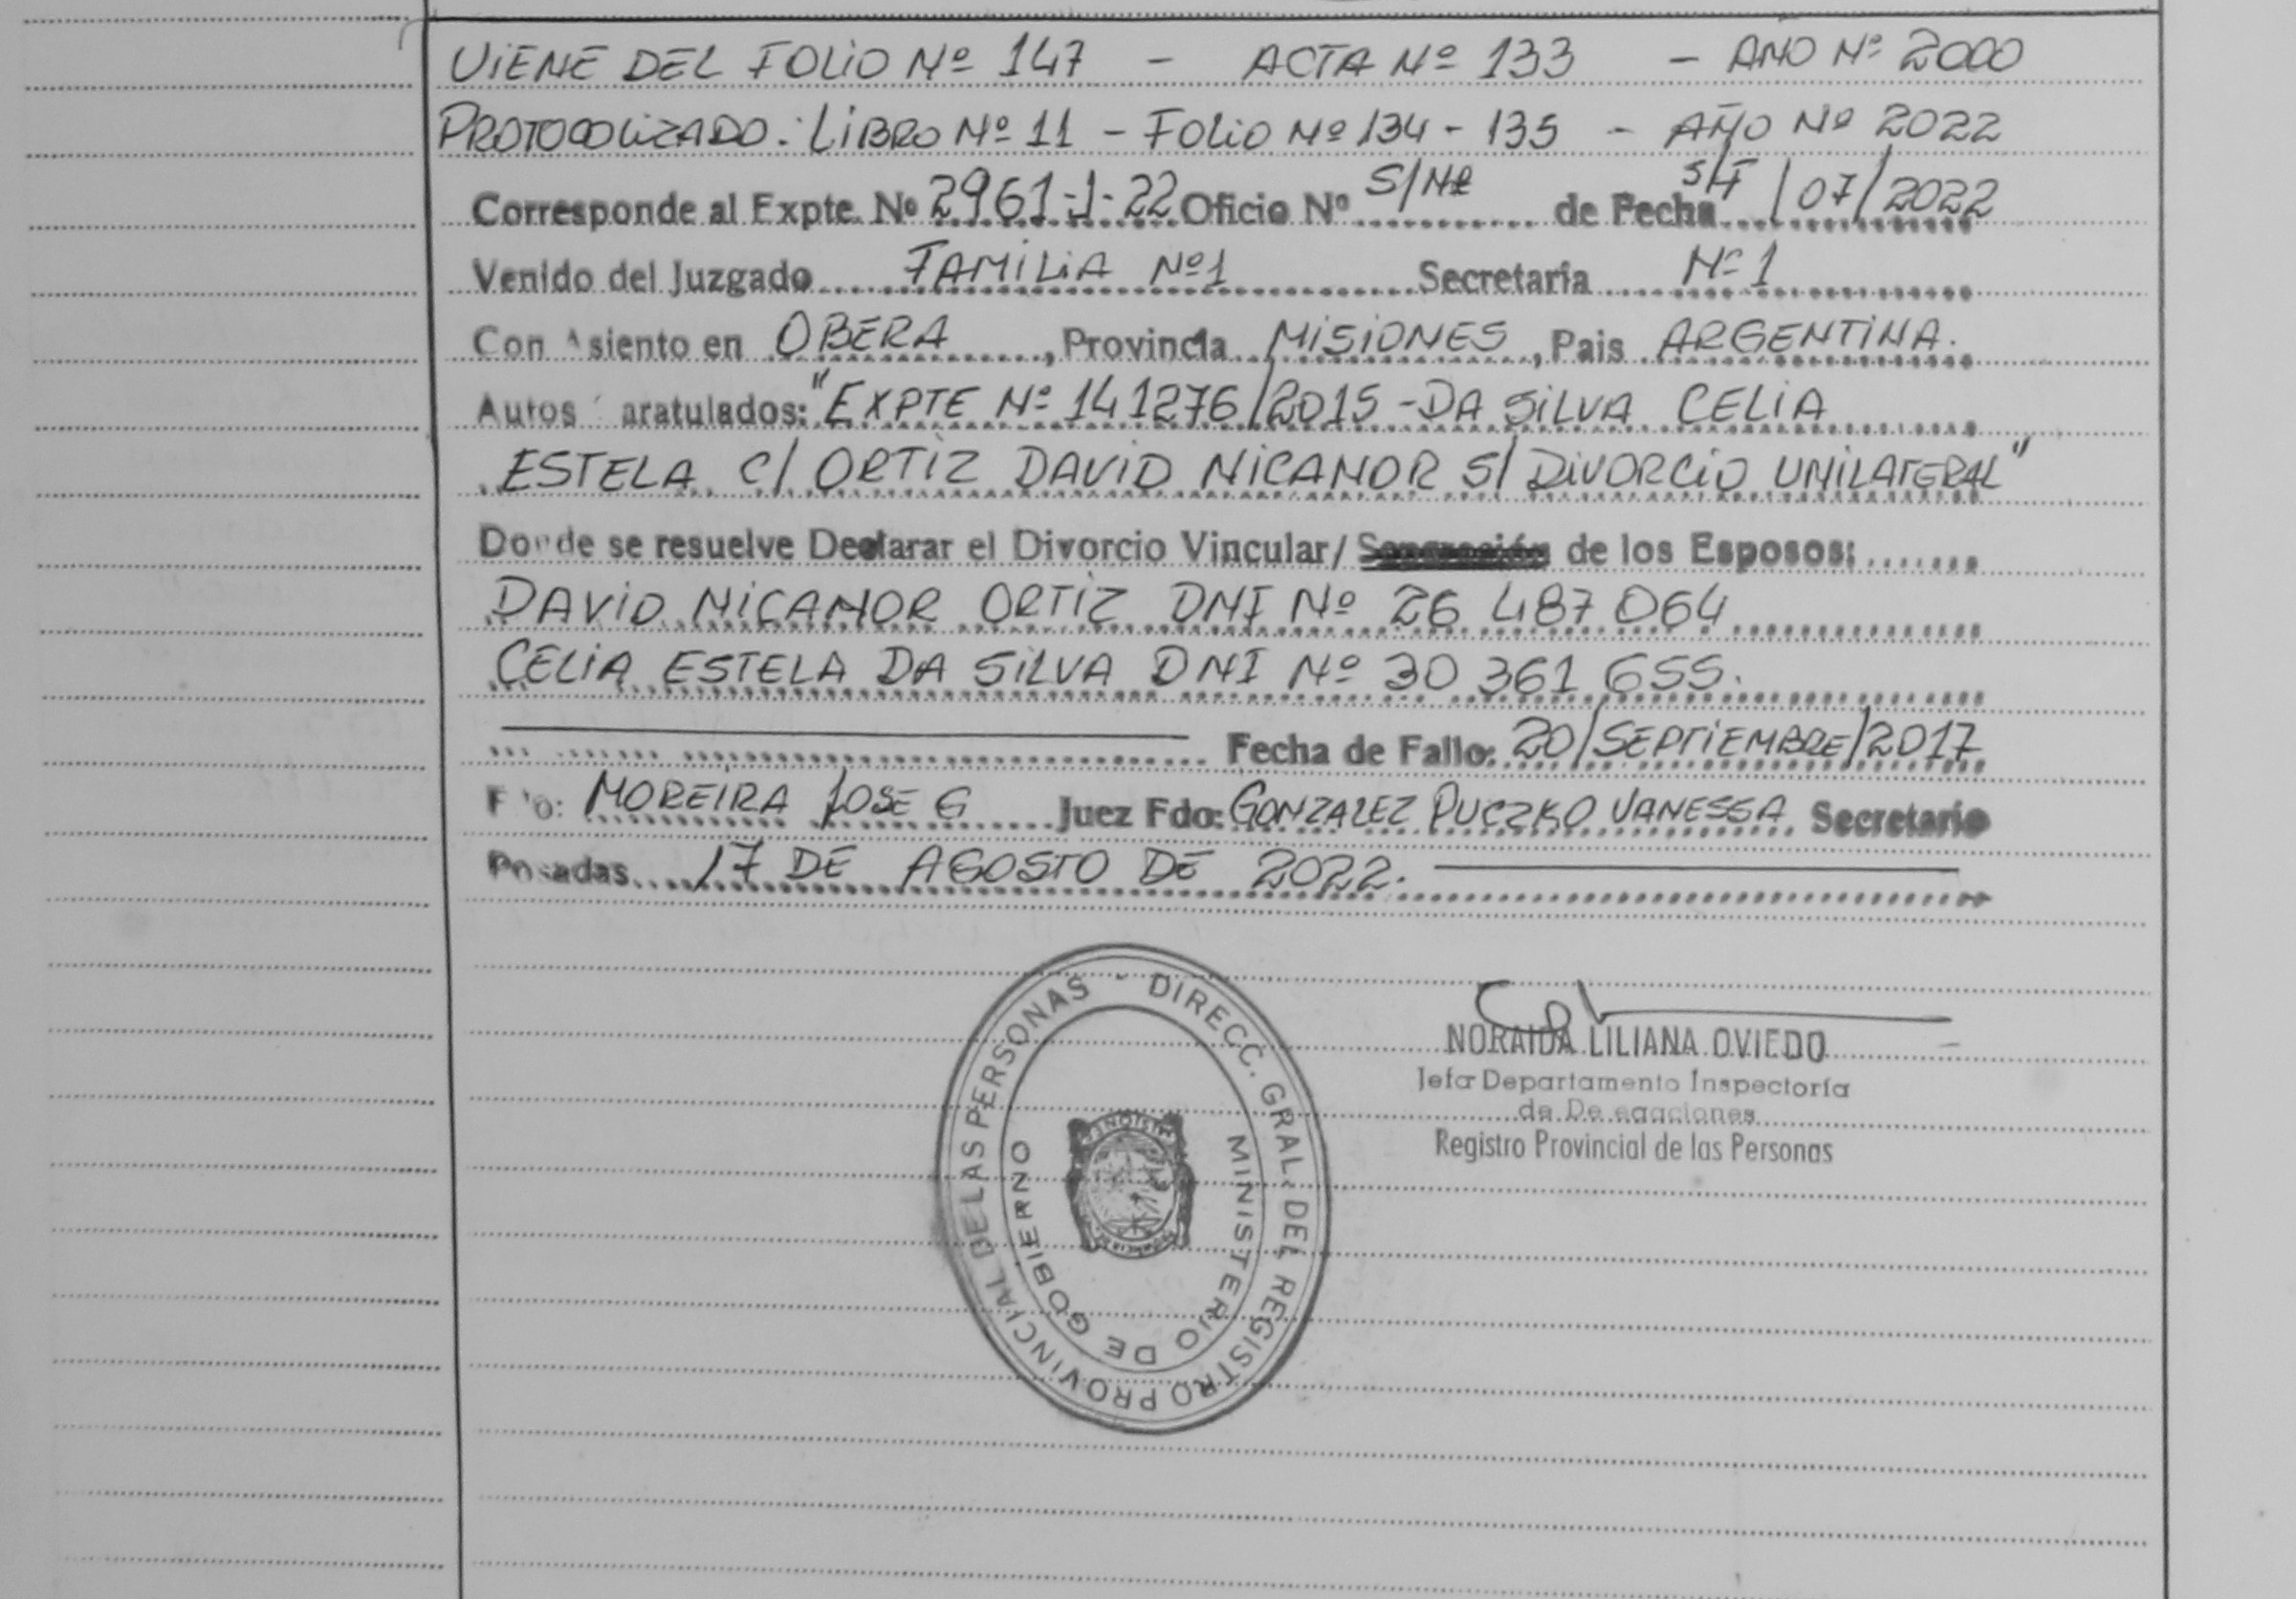 VIENE DEL FOLIO Nº 147 - ACTA Nº 133 - AÑO Nº 2000
PROTOCOLIZADO: LIBRO Nº 11 - FOLIO Nº 134 - 135 - AÑO Nº 2022
Corresponde al Expte. Nº 2961-J-22 Oficio Nº S/Nº de Fecha S/F/07/2022
Venido del Juzgado FAMILIA Nº1 Secretaría Nº 1
Con Asiento en OBERA, Provincia MISIONES, Pais ARGENTINA.
Autos aratulados: "EXPTE Nº 141276/2015 - DA SILVA CELIA
ESTELA C/ ORTIZ DAVID NICANOR S/ DIVORCIO UNILATERAL"
Donde se resuelve Declarar el Divorcio Vincular/ Separación de los Esposos:
DAVID NICANOR ORTIZ DNI Nº 26 487 064
CELIA ESTELA DA SILVA DNI Nº 30 361 655.
Fecha de Fallo: 20/SEPTIEMBRE/2017
F o: MOREIRA JOSE G Juez Fdo: GONZALEZ PUCZKO VANESSA Secretario
Posadas 17 DE AGOSTO DE 2022.
DIRECC. GRAL. DEL REGISTRO PROVINCIAL DE LAS PERSONAS -
MINISTERIO DE GOBIERNO
NORAIDA LILIANA OVIEDO
Jefa Departamento Inspectoría
de De egaciones
Registro Provincial de las Personas